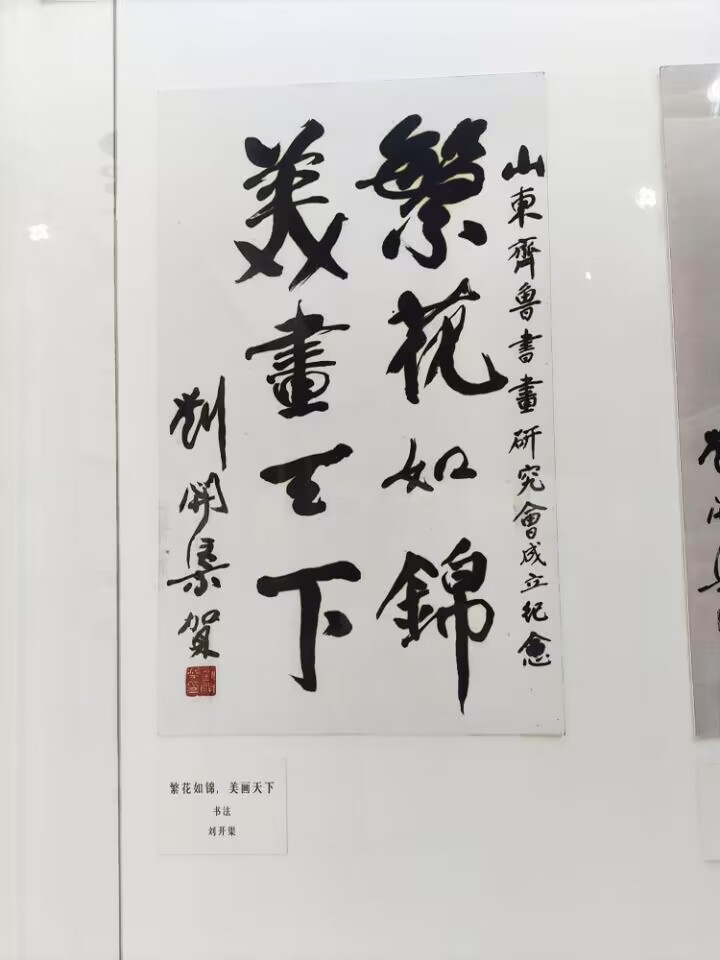 山東齊魯書畫研究會成立纪念
繁花如錦
美畫天下
劉開渠贺
繁花如锦，美画天下
书法
刘开渠